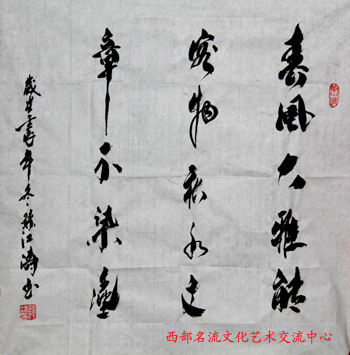 春风大雅能
容物秋水文
章不染尘
岁在壬午年冬孙江涛书
西部名流文化艺术交流中心